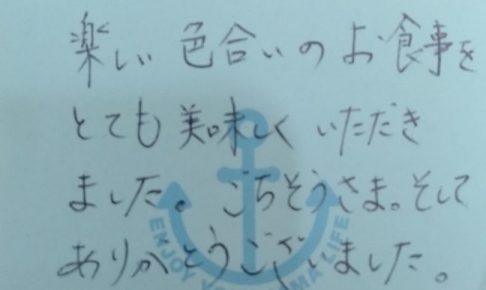 楽しい 色合いの お食事を
とても 美味しく いただき
ました。ごちそうさま。そして
ありがとうございました。
ENJOY YO MA LIFE